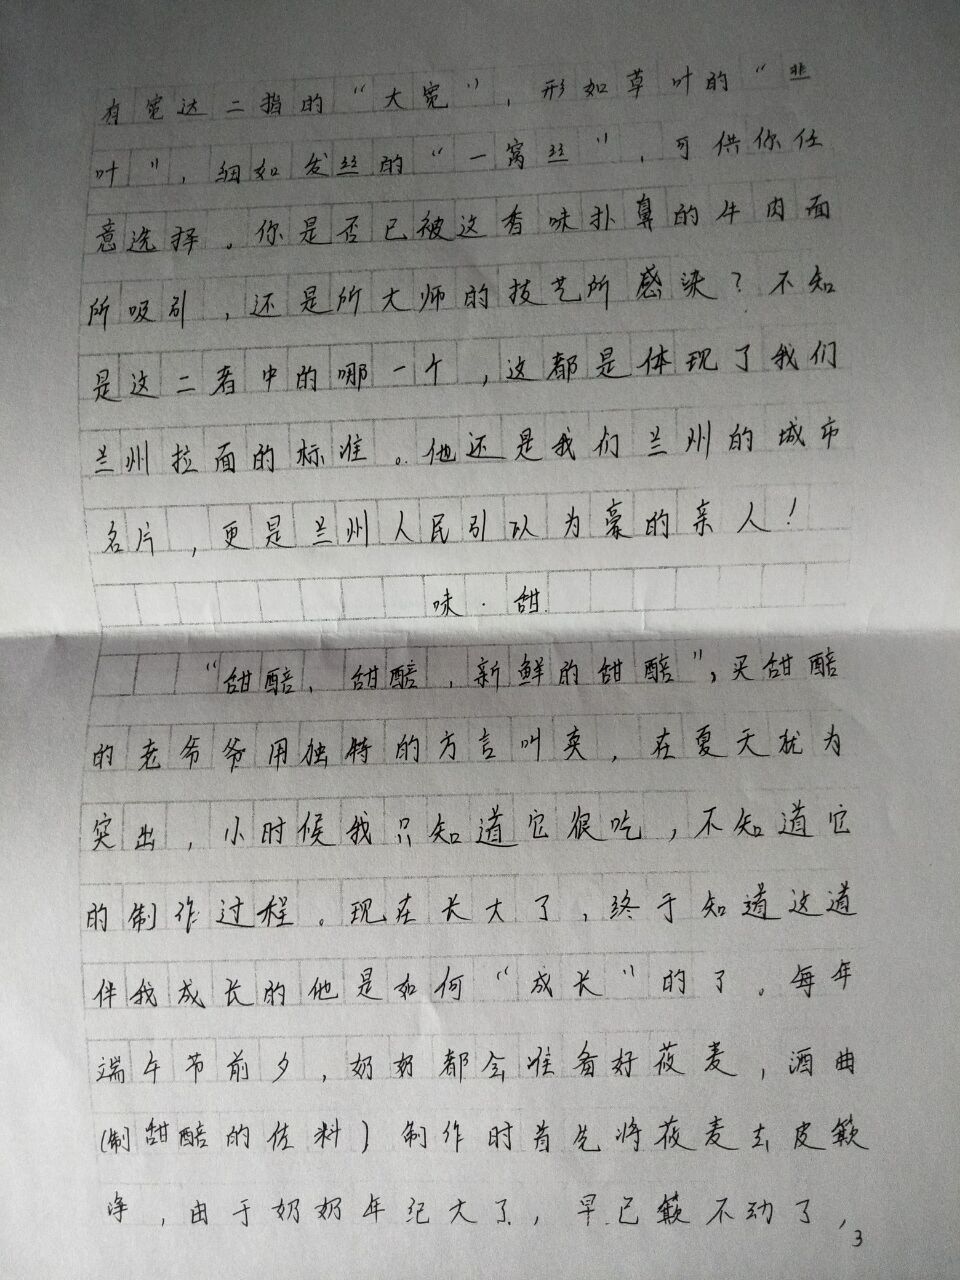 有宽达二指的“大宽”，形如草叶的“韭
叶”，细如发丝的“一窝丝”，可供你任
意选择。你是否已被这香味扑鼻的牛肉面
所吸引，还是所大师的技艺所感染？不知
是这二者中的哪一个，这都是体现了我们
兰州拉面的标准。他还是我们兰州的城市
名片，更是兰州人民引以为豪的亲人！
味·甜
“甜醅、甜醅，新鲜的甜醅”，买甜醅
的老爷爷用独特的方言叫卖，在夏天犹为
突出，小时候我只知道它很吃，不知道它
的制作过程。现在长大了，终于知道这道
伴我成长的他是如何“成长”的了。每年
端午节前夕，奶奶都会准备好莜麦，酒曲
(制甜醅的佐料）制作时首先将莜麦去皮簸
净，由于奶奶年纪大了，早已簸不动了，
3